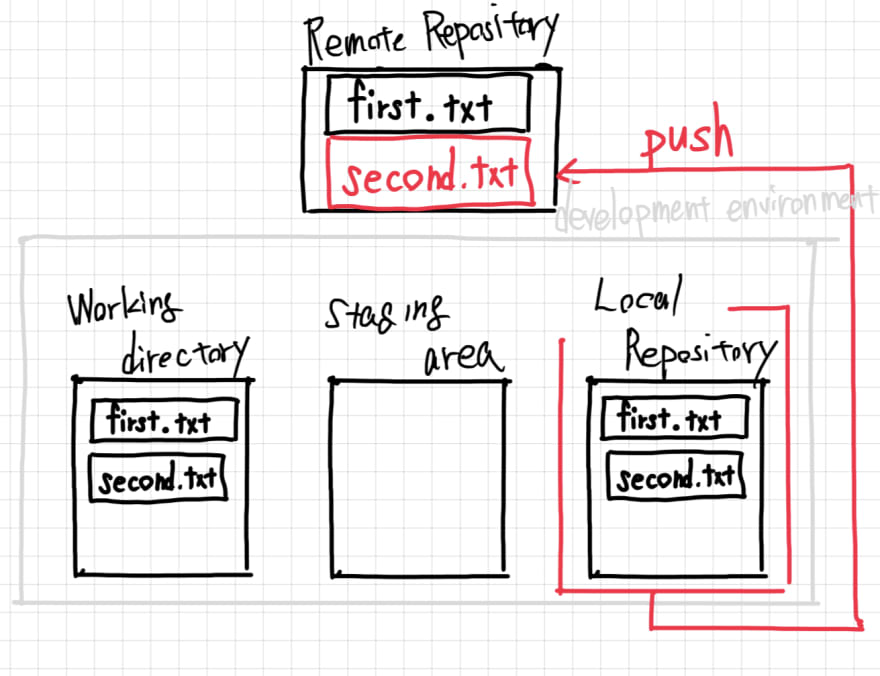 Remote Repository
first.txt
second.txt
push
development environment
Working
directory
first.txt
second.txt
Staging
area
Local
Repository
first.txt
second.txt